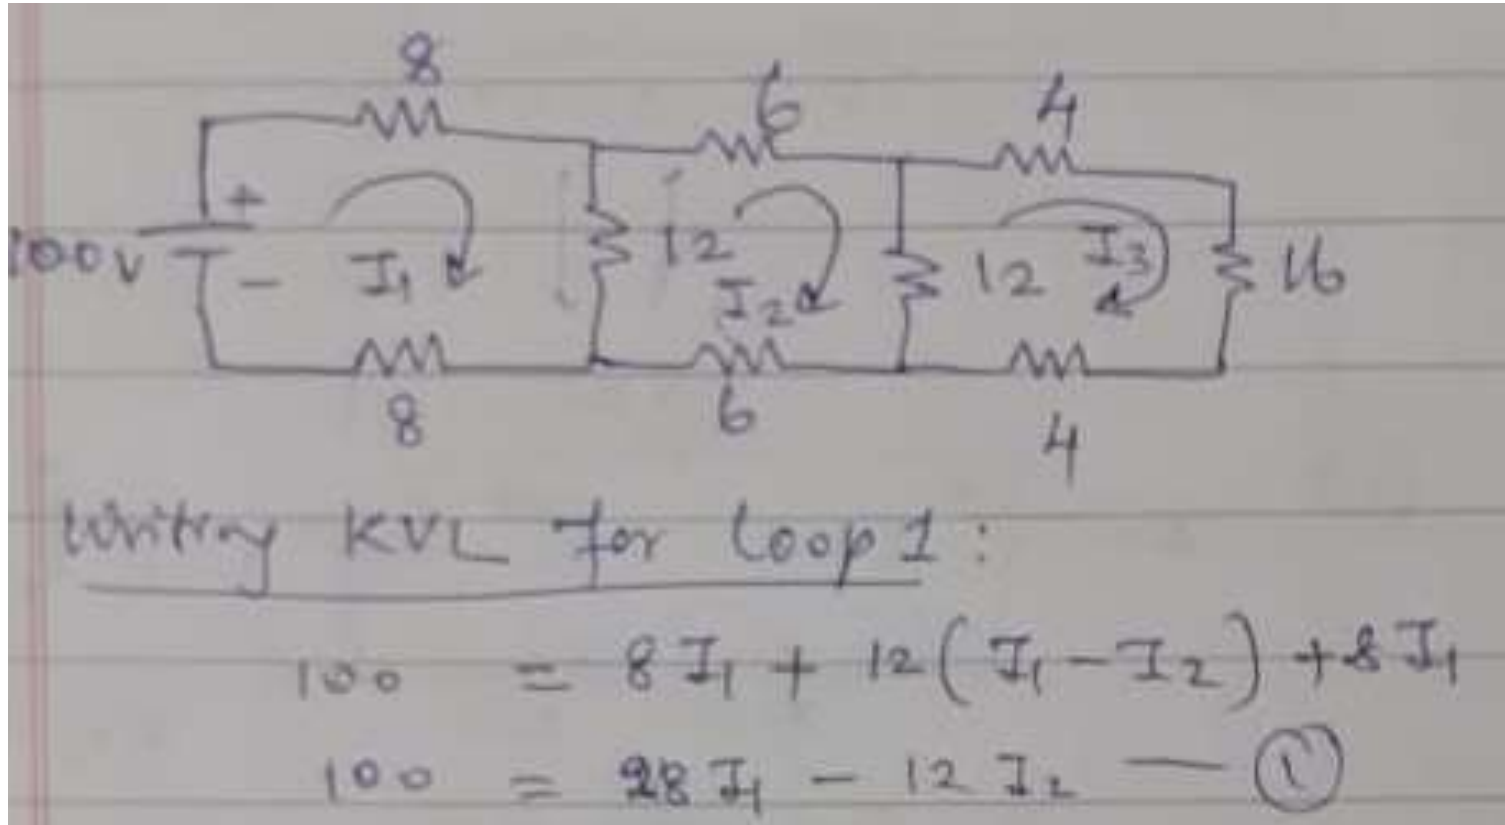 8 6 4
+
100V I1 12 I2 12 I3 16
-
8 6 4
Writing KVL for loop 1:
100 = 8 I1 + 12 (I1 - I2) + 8 I1
100 = 28 I1 - 12 I2 — 1